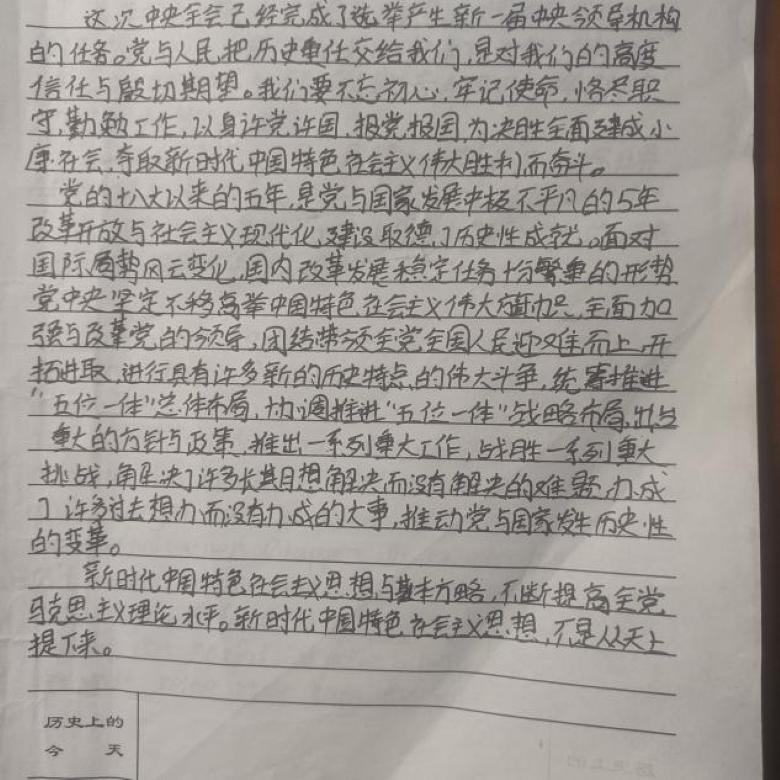 这次中央全会已经完成了选举产生新一届中央领导机构
的任务。党与人民把历史重任交给我们,是对我们的高度
信任与殷切期望。我们要不忘初心,牢记使命,恪尽职
守,勤勉工作,以身许党许国,报党报国,为决胜全面建成小
康社会,夺取新时代中国特色社会主义伟大胜利而奋斗。
党的十八大以来的五年,是党与国家发展中极不平凡的5年
改革开放与社会主义现代化建设取得了历史性成就。面对
国际局势风云变化,国内改革发展稳定任务十分繁重的形势
党中央坚定不移高举中国特色社会主义伟大旗帜,全面加
强与改革党的领导,团结带领全党全国人民迎难而上,开
拓进取,进行具有许多新的历史特点的伟大斗争,统筹推进
"五位一体"总体布局,协调推进"五位一体"战略布局,出台
重大的方针与政策,推出一系列重大工作,战胜一系列重大
挑战,解决了许多长期想解决而没有解决的难题,办成
了许多过去想办而没有办成的大事,推动党与国家发生历史性
的变革。
新时代中国特色社会主义思想与基本方略,不断提高全党
马克思主义理论水平。新时代中国特色社会主义思想,不是从天上
提下来。
历史上的
今 天